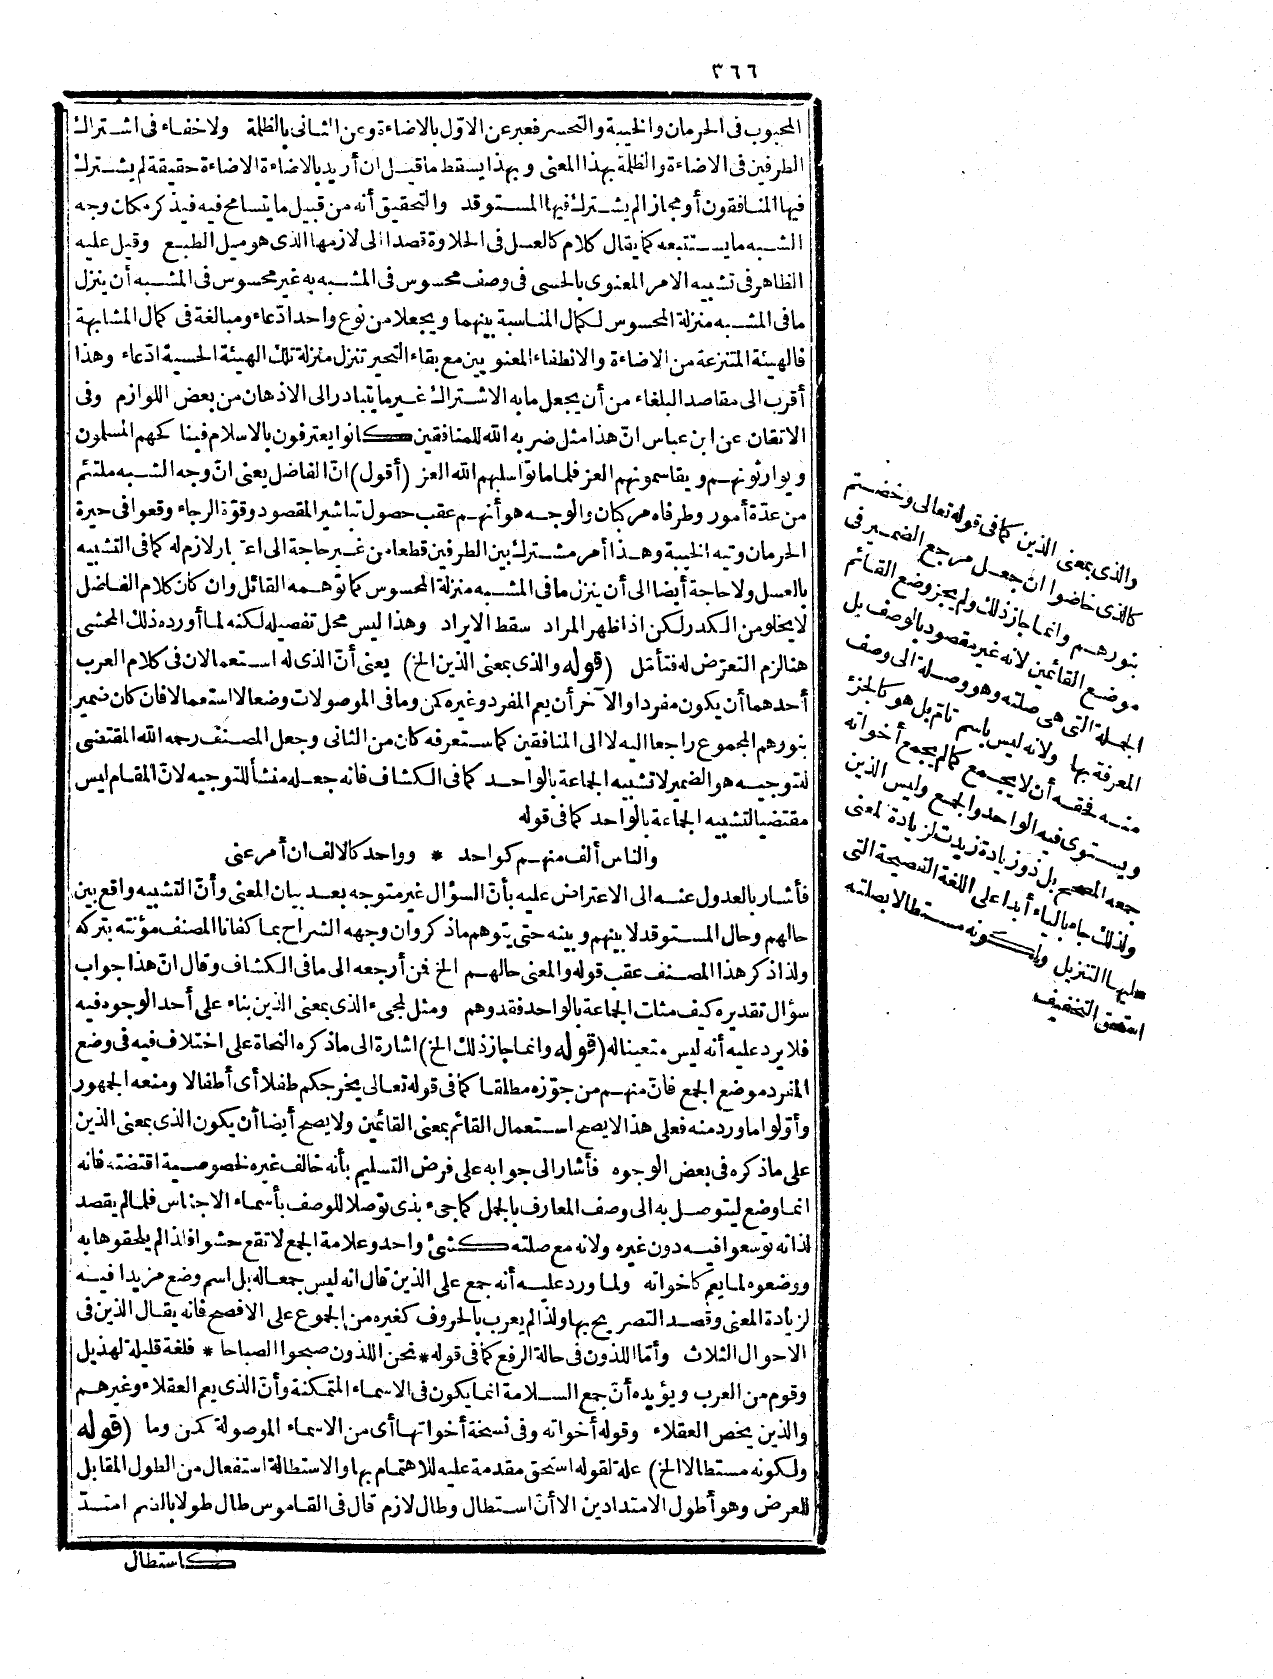 ٣٦٦
المحبوب فى الحرمان والخيبة والتحسر فعبر عن الاوّل بالاضاءة وعن الثانى بالظلمة ولا خفاء فى اشتراك
الطرفين فى الاضاءة والظلمة بهذا المعنى وبهذا يسقط ما قيل ان أريد بالاضاءة الاضاءة حقيقة لم يشترك
فيها المنافقون أو مجاز الم يشترك فيها المستوقد والتحقيق أنه من قبيل ما يتسامح فيه فيذكر مكان وجه
الشبه ما يستتبعه كما يقال كلام كالعسل فى الحلاوة قصدا الى لازمها الذى هو ميل الطبع وقيل عليه
الظاهر فى تشبيه الامر المعنوى بالحسى فى وصف محسوس فى المشبه به غير محسوس فى المشبه أن ينزل
ما فى المشبه منزلة المحسوس لكمال المناسبة بينهما ويجعلا من نوع واحد ادّعاء ومبالغة فى كمال المشابهة
فالهيئة المتنزعة من الاضاءة والانطفاء المعنويين مع بقاء التحير تنزل منزلة تلك الهيئة الحسية ادّعاء وهذا
أقرب الى مقاصد البلغاء من أن يجعل ما به الاشتراك غير ما يتبادر الى الاذهان من بعض اللوازم وفى
الاتقان عن ابن عباس انّ هذا مثل ضربه الله للمنافقين كانوا يعترفون بالاسلام فينا كحهم المسلمون
ويوارثونهم ويقاسمونهم العز فلما ماتوا سلبهم الله العز (أقول) انّ الفاضل يعنى انّ وجه الشبه ملتئم
من عدّة أمور وطرفاه مركبان والوجه هو أنهم عقب حصول تباشير المقصود وقوّة الرجاء وقعوا فى حيرة
الحرمان وتيه الخيبة وهذا أمر مشترك بين الطرفين قطعا من غير حاجة الى اعتبار لازم له كما فى التشبيه
بالعسل ولا حاجة أيضا الى أن ينزل ما فى المشبه منزلة المحسوس كما توهمه القائل وان كان كلام الفاضل
لا يخلو من الكدر لكن اذا ظهر المراد سقط الايراد وهذا ليس محل تفصيله لكنه لما أورده ذلك المحشى
هنا لزم التعرّض له فتأمّل (قوله والذى بمعنى الذين الخ) يعنى أنّ الذى له استعمالان فى كلام العرب
أحدهما أن يكون مفردا والآخر أن يعم المفرد وغيره كمن وما فى الموصولات وضعا لا استعمالا فان كان ضمير
بنورهم المجموع راجعا اليه لا الى المنافقين كما ستعرفه كان من الثانى وجعل المصنف رحمه الله المقتضى
لتوجيه هو الضمير لا تشبيه الجماعة بالواحد كما فى الكشاف فانه جعله منشأ للتوجيه لانّ المقام ليس
مقتضيا لتشبيه الجماعة بالواحد كما فى قوله
والناس ألف منهم كواحد * وواحد كالالف ان أمر عنى
فأشار بالعدول عنه الى الاعتراض عليه بأنّ السؤال غير متوجه بعد بيان المعنى وأنّ التشبيه واقع بين
حالهم وحال المستوقد لا بينهم وبينه حتى يتوهم ما ذكر وان وجهه الشراح بما كفانا المصنف مؤنته بتركه
ولذا ذكر هذا المصنف عقب قوله والمعنى حالهم الخ فمن أرجعه الى ما فى الكشاف وقال انّ هذا جواب
سؤال تقديره كيف مثلت الجماعة بالواحد فقد وهم ومثل لمجىء الذى بمعنى الذين بناء على أحد الوجوه فيه
فلا يرد عليه أنه ليس متعينا له (قوله وانما جاز ذلك الخ) اشارة الى ما ذكره النحاة على اختلاف فيه فى وضع
المفرد موضع الجمع فانّ منهم من جوّزه مطلقا كما فى قوله تعالى يخرجكم طفلا أى أطفالا ومنعه الجمهور
وأوّلوا ما ورد منه فعلى هذا لا يصح استعمال القائم بمعنى القائمين ولا يصح أيضا أن يكون الذى بمعنى الذين
على ما ذكره فى بعض الوجوه فأشار الى جوابه على فرض التسليم بأنه خالف غيره لخصوصية اقتضته فانه
انما وضع ليتوصل به الى وصف المعارف بالجمل كما جىء بذى توصلا للوصف بأسماء الاجناس فلما لم يقصد
لذاته توسعوا فيه دون غيره ولانه مع صلته كشئ واحد وعلامة الجمع لا تقع حشوا فلذا لم يلحقوها به
ووضعوه لما يعم كاخواته ولما ورد عليه أنه جمع على الذين قال انه ليس جمعا له بل اسم وضع مزيدا فيه
لزيادة المعنى وقصد التصريح بها ولذا لم يعرب بالحروف كغيره من الجموع على الافصح فانه يقال الذين فى
الاحوال الثلاث وأمّا اللذون فى حالة الرفع كما فى قوله * نحن اللذون صبحوا الصباحا * فلغة قليلة لهذيل
وقوم من العرب ويؤيده أنّ جمع السلامة انما يكون فى الاسماء المتمكنة وأنّ الذى يعم العقلاء وغيرهم
والذين يخص العقلاء وقوله أخواته وفى نسخة أخواتها أى من الاسماء الموصولة كمن وما (قوله
ولكونه مستطالا الخ) علة لقوله استحق مقدمة عليه للاهتمام بها والاستطالة استفعال من الطول المقابل
للعرض وهو أطول الامتدادين الا أنّ استطال وطال لازم قال فى القاموس طال طولا بالضم امتدّ
كاستطال
والذى بمعنى الذين كما فى قوله تعالى وخضتم
كالذى خاضوا ان جعل مرجع الضمير فى
بنورهم وانما جاز ذلك ولم يجز وضع القائم
موضع القائمين لانه غير مقصود بالوصف بل
الجملة التى هى صلته وهو وصلة الى وصف
المعرفة بها ولانه ليس باسم تامّ بل هو كالجزء
منه فحقه أن لا يجمع كما لم يجمع أخواته
ويستوى فيه الواحد والجمع وليس الذين
جمعه المصحح بل ذو زيادة زيدت لزيادة المعنى
ولذلك جاء بالياء أبدا على اللغة الفصيحة التى
عليها التنزيل ولكونه مستطالا بصلته
استحق التخفيف